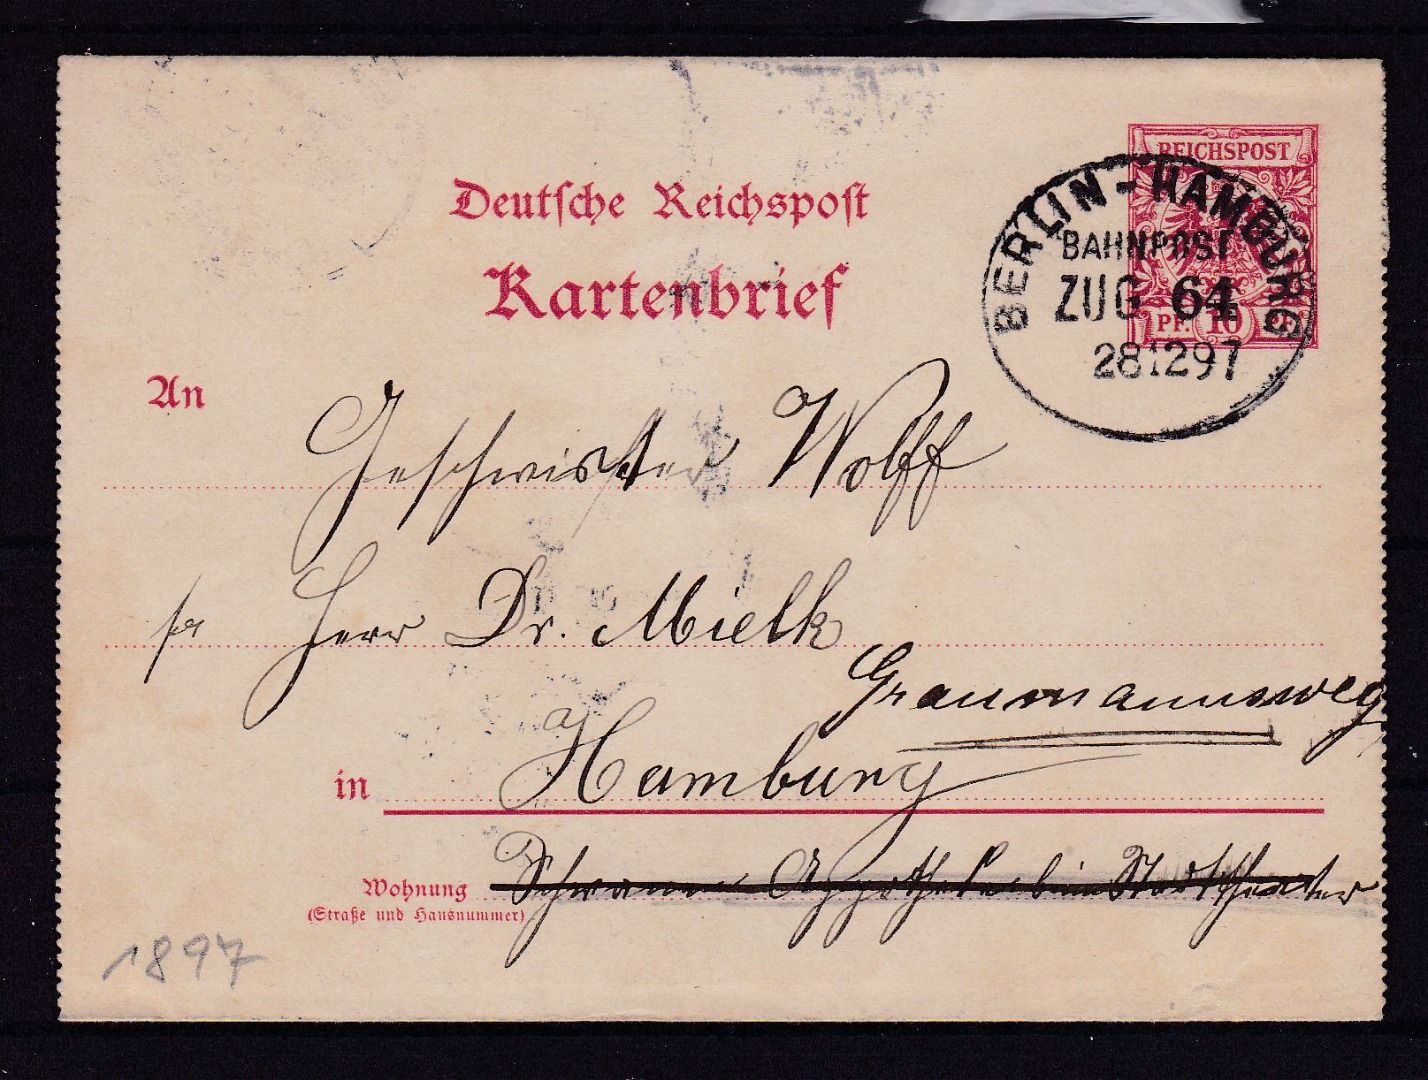 REICHSPOST
PF. 10 PF.
BERLIN-HAMBURG
BAHNPOST
ZUG 64
281297
Deutsche Reichspost
Kartenbrief
An
Geschwister Wolff
Herr Dr. Mielk
Graumannsweg
in Hamburg
Wohnung Schwanen Apotheke beim Stadttheater
(Straße und Hausnummer)
1897